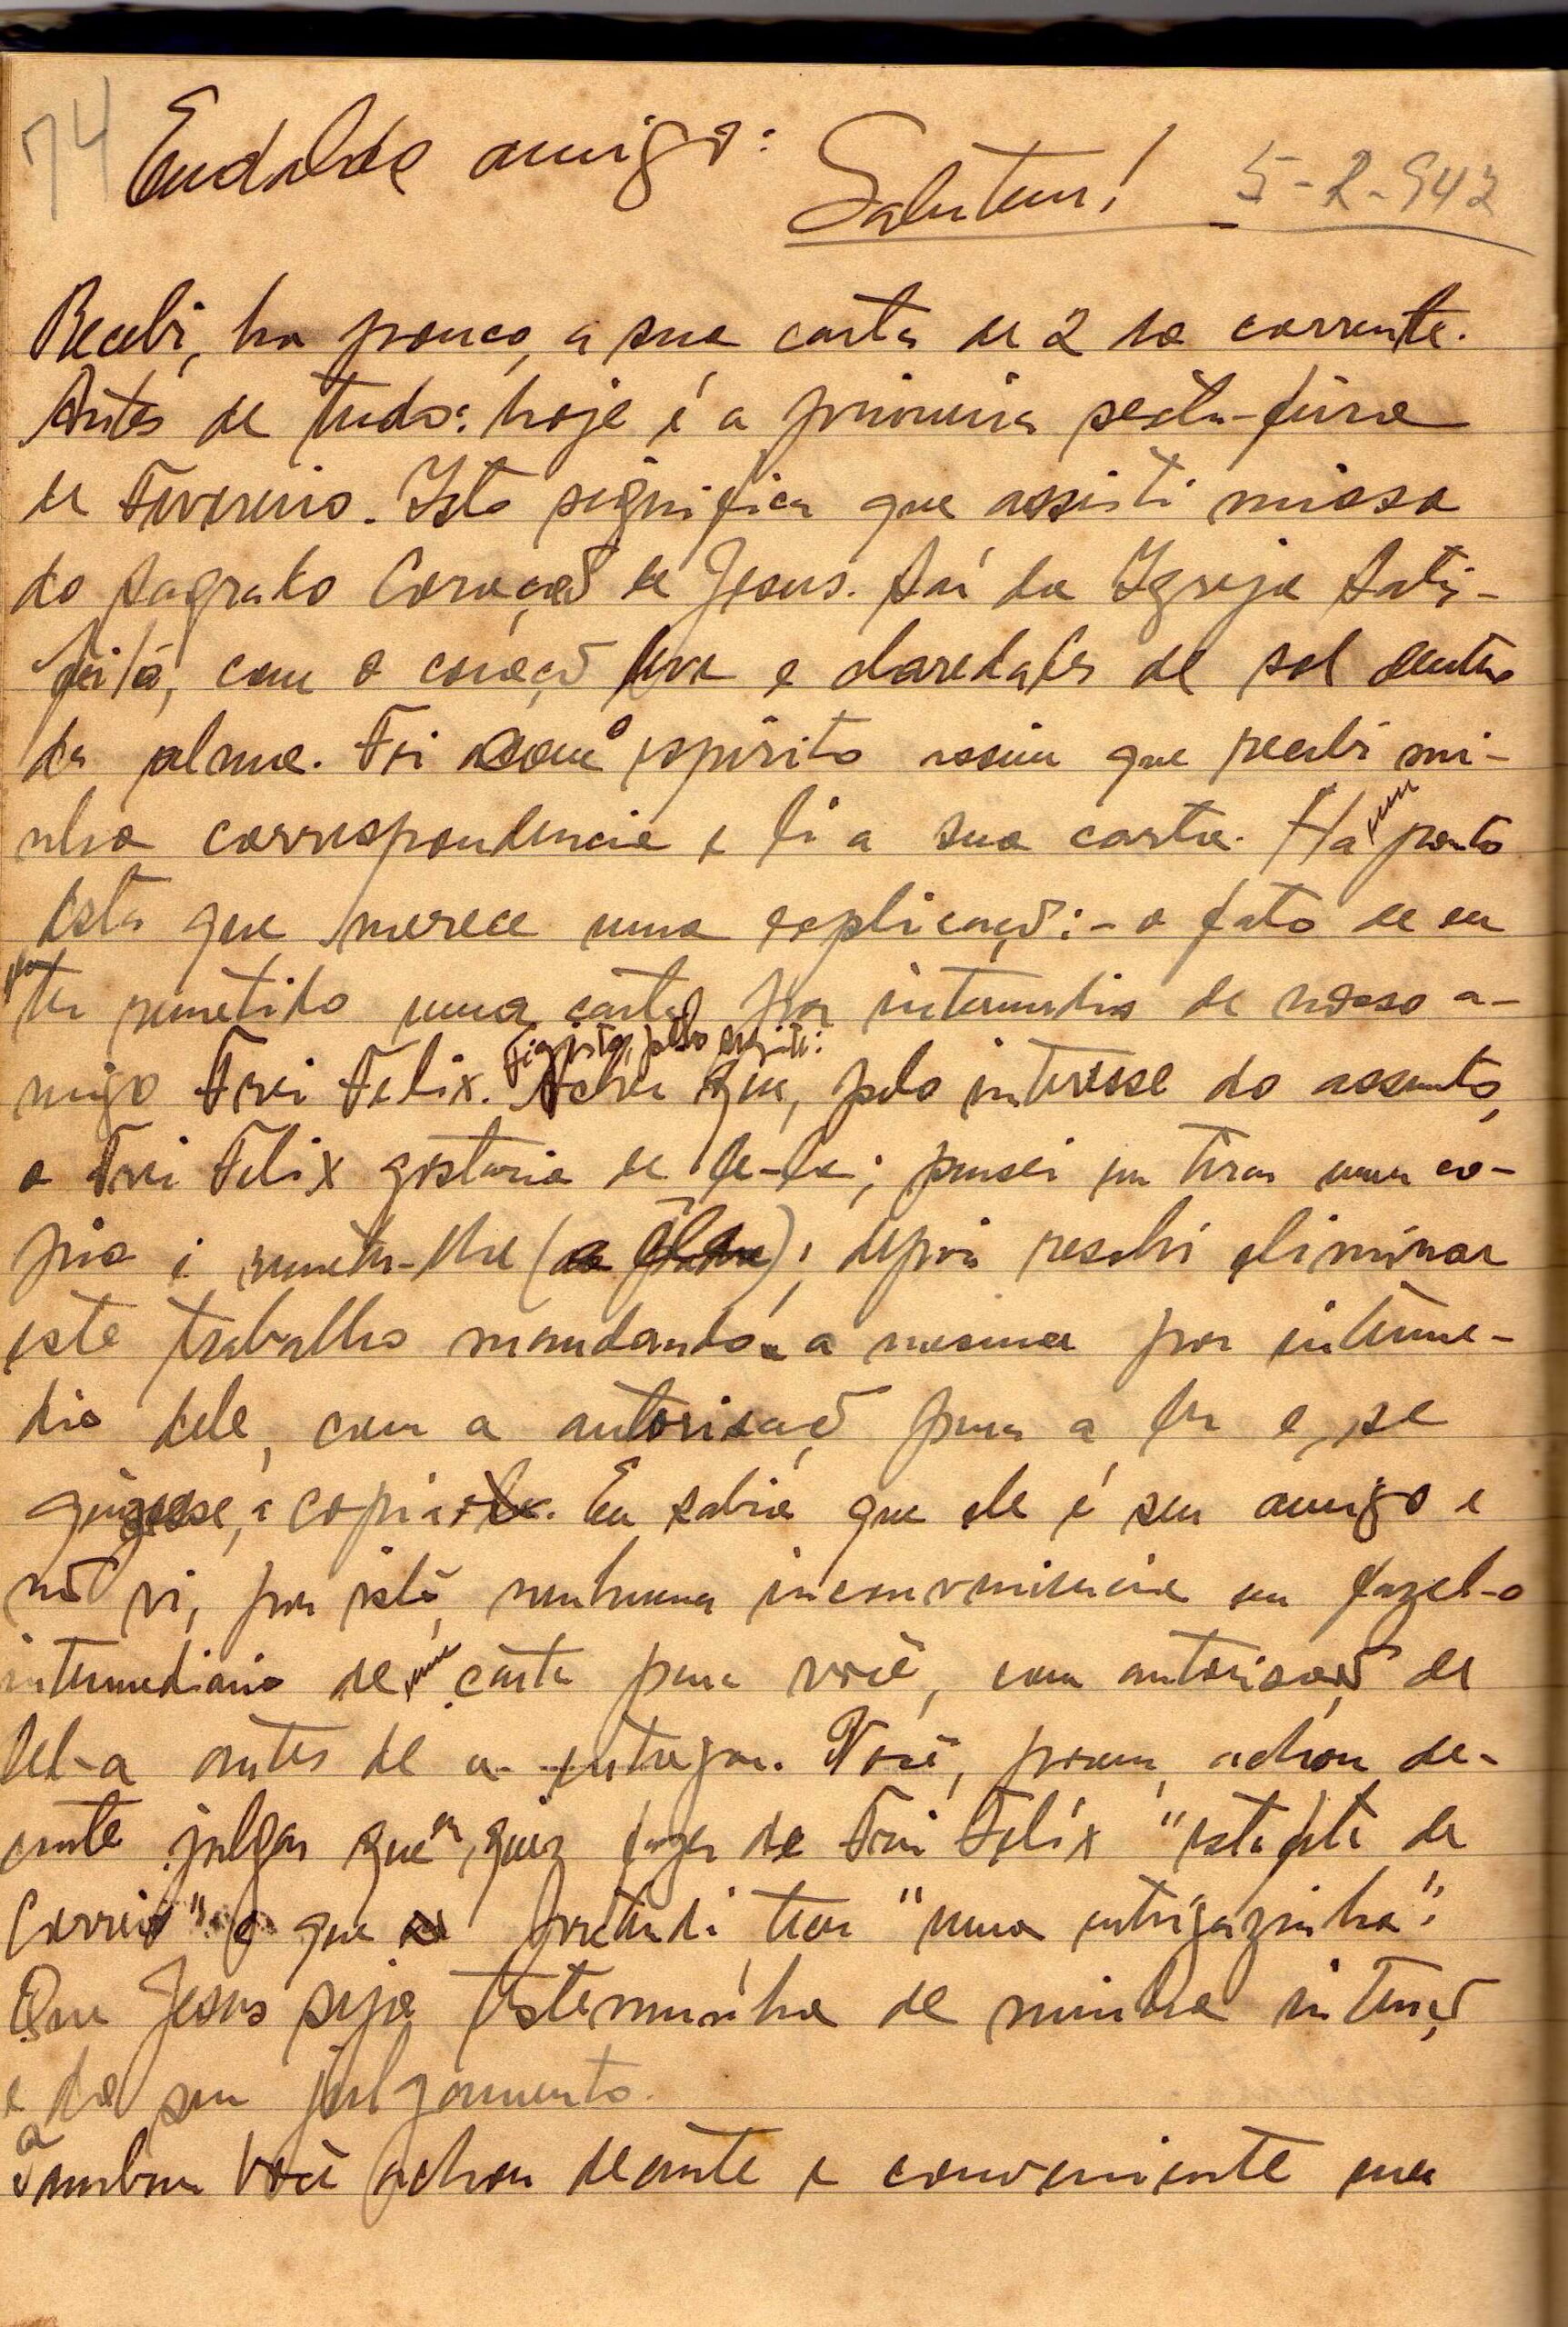 74 Eudaldo amigo:
Salutem! 5-2-942
Recebi, ha pouco, a sua carta de 2 do corrente.
Antes de tudo: hoje é a primeira sexta-feira
de Fevereiro. Isto significa que assisti missa
do Sagrado Coração de Jesus. Saí da Igreja Satis-
feitó, com o coração leve e claredades de sol dentro
da alma. Foi com o espirito assim que recebi mi-
nha correspondencia e li a sua carta. Ha um ponto
desta que merece uma explicação: - o fato de eu
ter remetido uma carta por intermedio de nosso a-
migo Frei Felix. Fiz isto, pelo seguite:
Achei que, pelo interesse do assunto,
o Frei Felix gostaria de le-la; pensei em tirar uma co-
pia e remeter-lhe; depois resolvi eliminar
este trabalho mandando a mesma por interme-
dio dele, com a autorisação para a ler e, se
quizesse, a copiar. Eu sabia que ele é seu amigo e
não vi, por isto, nenhuma inconveniencia em fazel-o
intermediario de uma carta para você, com autorisação de
lel-a antes de a entregar. Você, porem, achou de-
cente julgar que eu quiz fazer de Frei Felix "estafeta de
Correio" e que pretendi tecer "uma intrigazinha".
Que Jesus seja testemunha de minha intenção
e do seu julgamento.
Tambem você achou decente e conveniente uma